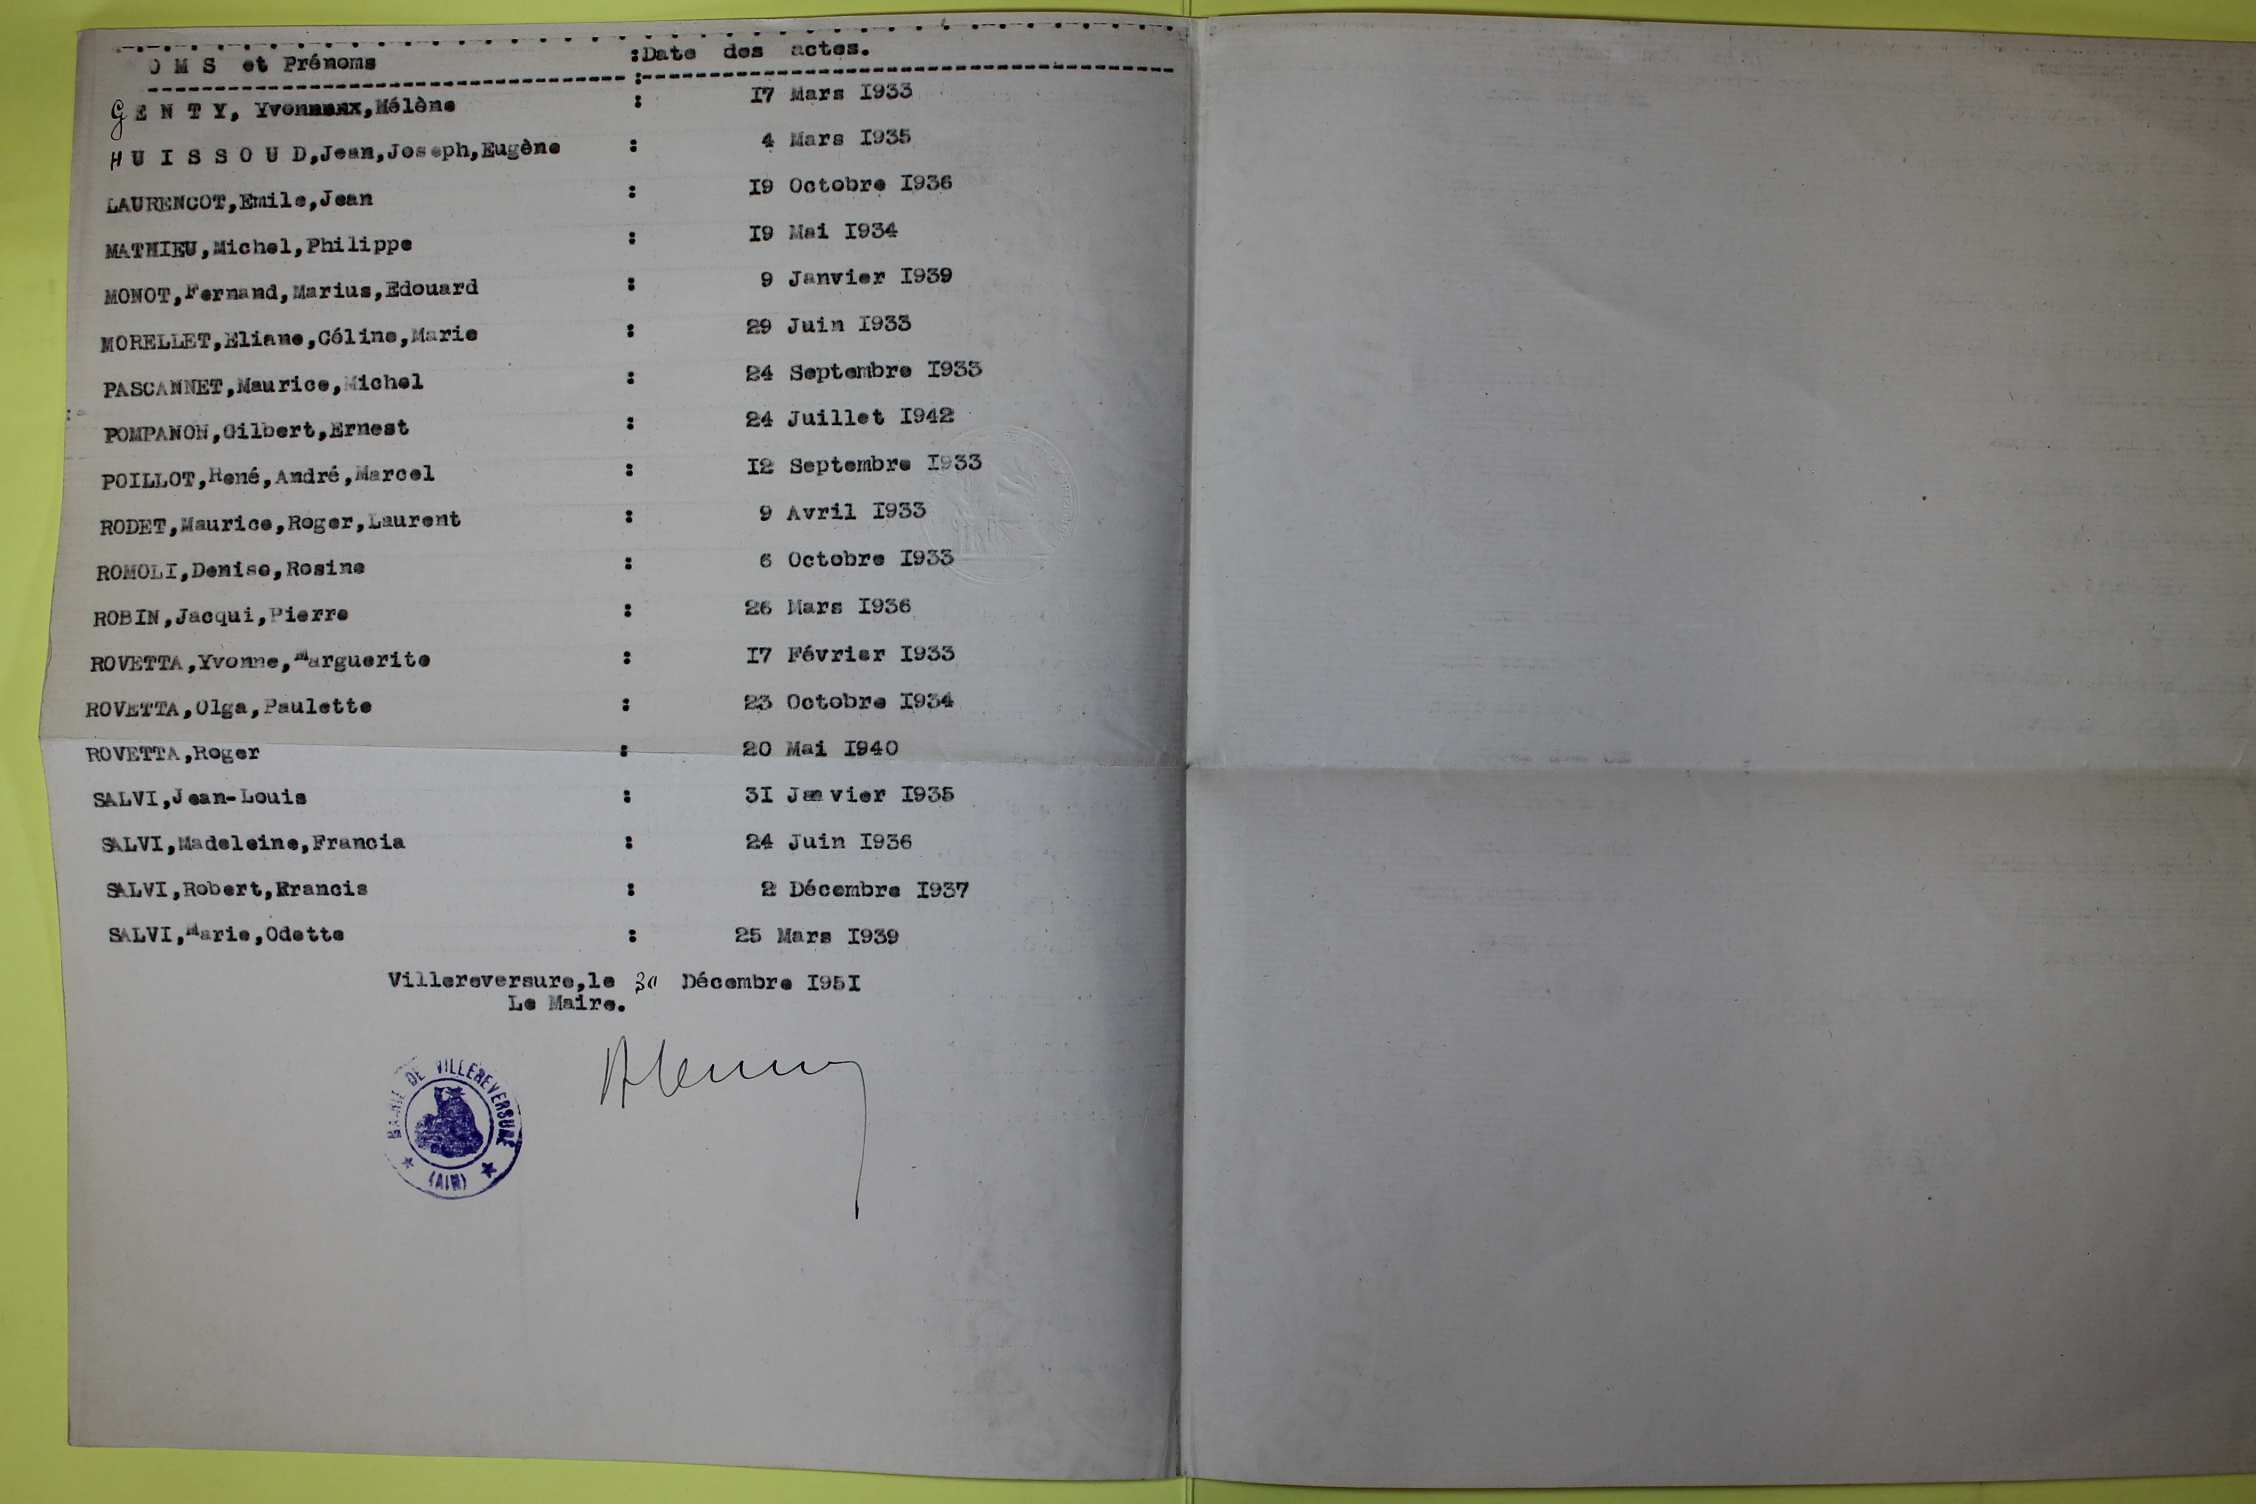 OMS et Prénoms :Date des actes.
GENTY, Yvon, Hélène : I7 Mars I933
HUISSOUD,Jean,Joseph,Eugène : 4 Mars I935
LAURENCOT,Emile,Jean : I9 Octobre I936
MATHIEU,Michel,Philippe : I9 Mai I934
MONOT,Fernand,Marius,Edouard : 9 Janvier I939
MORELLET,Eliane,Céline,Marie : 29 Juin I933
PASCANNET,Maurice,Michel : 24 Septembre I933
POMPANON,Gilbert,Ernest : 24 Juillet I942
POILLOT,René,André,Marcel : I2 Septembre I933
RODET,Maurice,Roger,Laurent : 9 Avril I933
ROMOLI,Denise,Rosine : 6 Octobre I933
ROBIN,Jacqui,Pierre : 26 Mars I936
ROVETTA,Yvonne,Marguerite : I7 Février I933
ROVETTA,Olga,Paulette : 23 Octobre I934
ROVETTA,Roger : 20 Mai I940
SALVI,Jean-Louis : 3I Janvier I935
SALVI,Madeleine,Francia : 24 Juin I936
SALVI,Robert,Francis : 2 Décembre I937
SALVI,Marie,Odette : 25 Mars I939
Villereversure,le 30 Décembre I95I
Le Maire.
MAIRIE DE VILLEREVERSURE
(AIN)